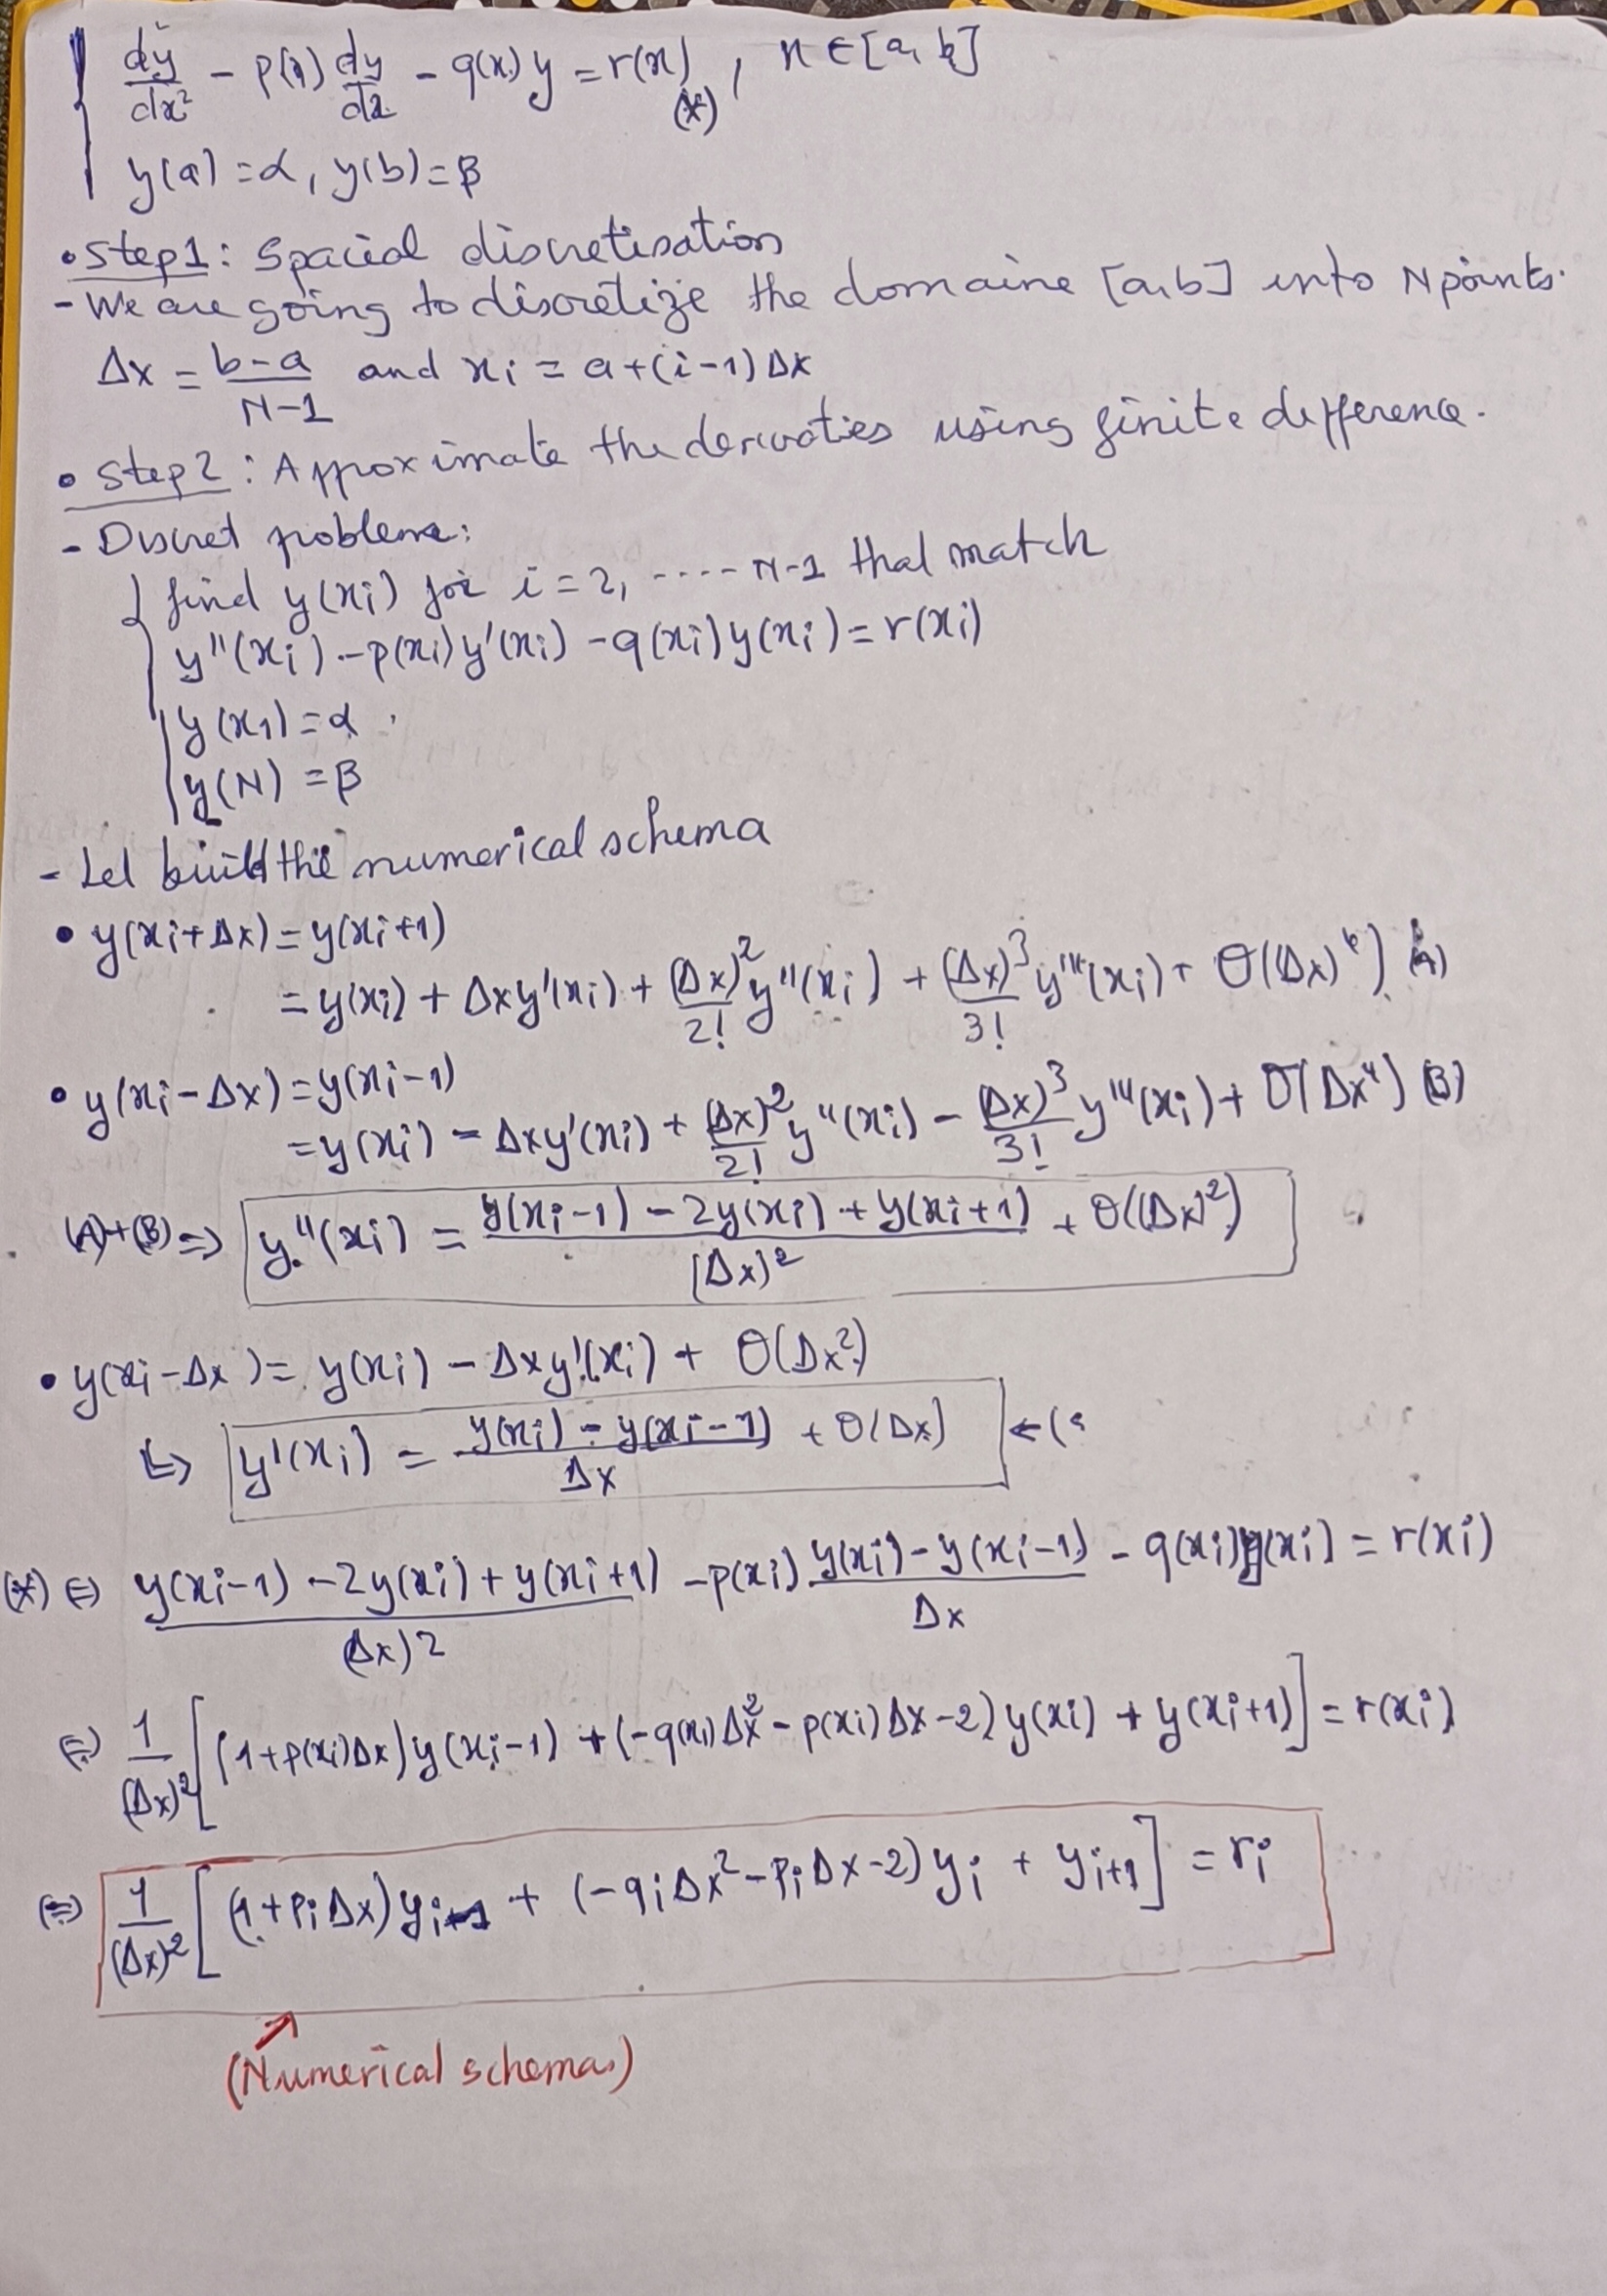 dy/dx² - p(x) dy/dx - q(x) y = r(x) (*), x ∈ [a, b]
y(a) = α, y(b) = β
• Step1: Spacial discretisation
- We are going to discretize the domaine [a,b] into N points.
Δx = b-a/N-1 and xi = a+(i-1) Δx
• Step2: Approximate the derivaties using finite difference.
- Discret probleme:
find y(xi) for i = 2, ---- N-1 that match
y''(xi) - p(xi) y'(xi) - q(xi) y(xi) = r(xi)
y(x1) = α
y(N) = β
- Let build the numerical schema
• y(xi+Δx) = y(xi+1)
= y(xi) + Δxy'(xi) + (Δx)²/2! y''(xi) + (Δx)³/3! y'''(xi) + O((Δx)⁴) (A)
• y(xi-Δx) = y(xi-1)
= y(xi) - Δxy'(xi) + (Δx)²/2! y''(xi) - (Δx)³/3! y'''(xi) + O(Δx⁴) (B)
(A)+(B) ⇒ y''(xi) = y(xi-1) - 2y(xi) + y(xi+1)/(Δx)² + O((Δx)²)
• y(xi-Δx) = y(xi) - Δxy'(xi) + O(Δx²)
↳ y'(xi) = y(xi) - y(xi-1)/Δx + O(Δx) ←(
(*) ⇔ y(xi-1) - 2y(xi) + y(xi+1)/(Δx)2 - p(xi) y(xi) - y(xi-1)/Δx - q(xi)y(xi) = r(xi)
⇔ 1/(Δx)² [(1+p(xi)Δx) y(xi-1) + (-q(xi)Δx² - p(xi)Δx-2) y(xi) + y(xi+1)] = r(xi)
⇔ 1/(Δx)² [(1+piΔx) yi-1 + (-qiΔx² - piΔx-2) yi + yi+1] = ri
(Numerical schema)